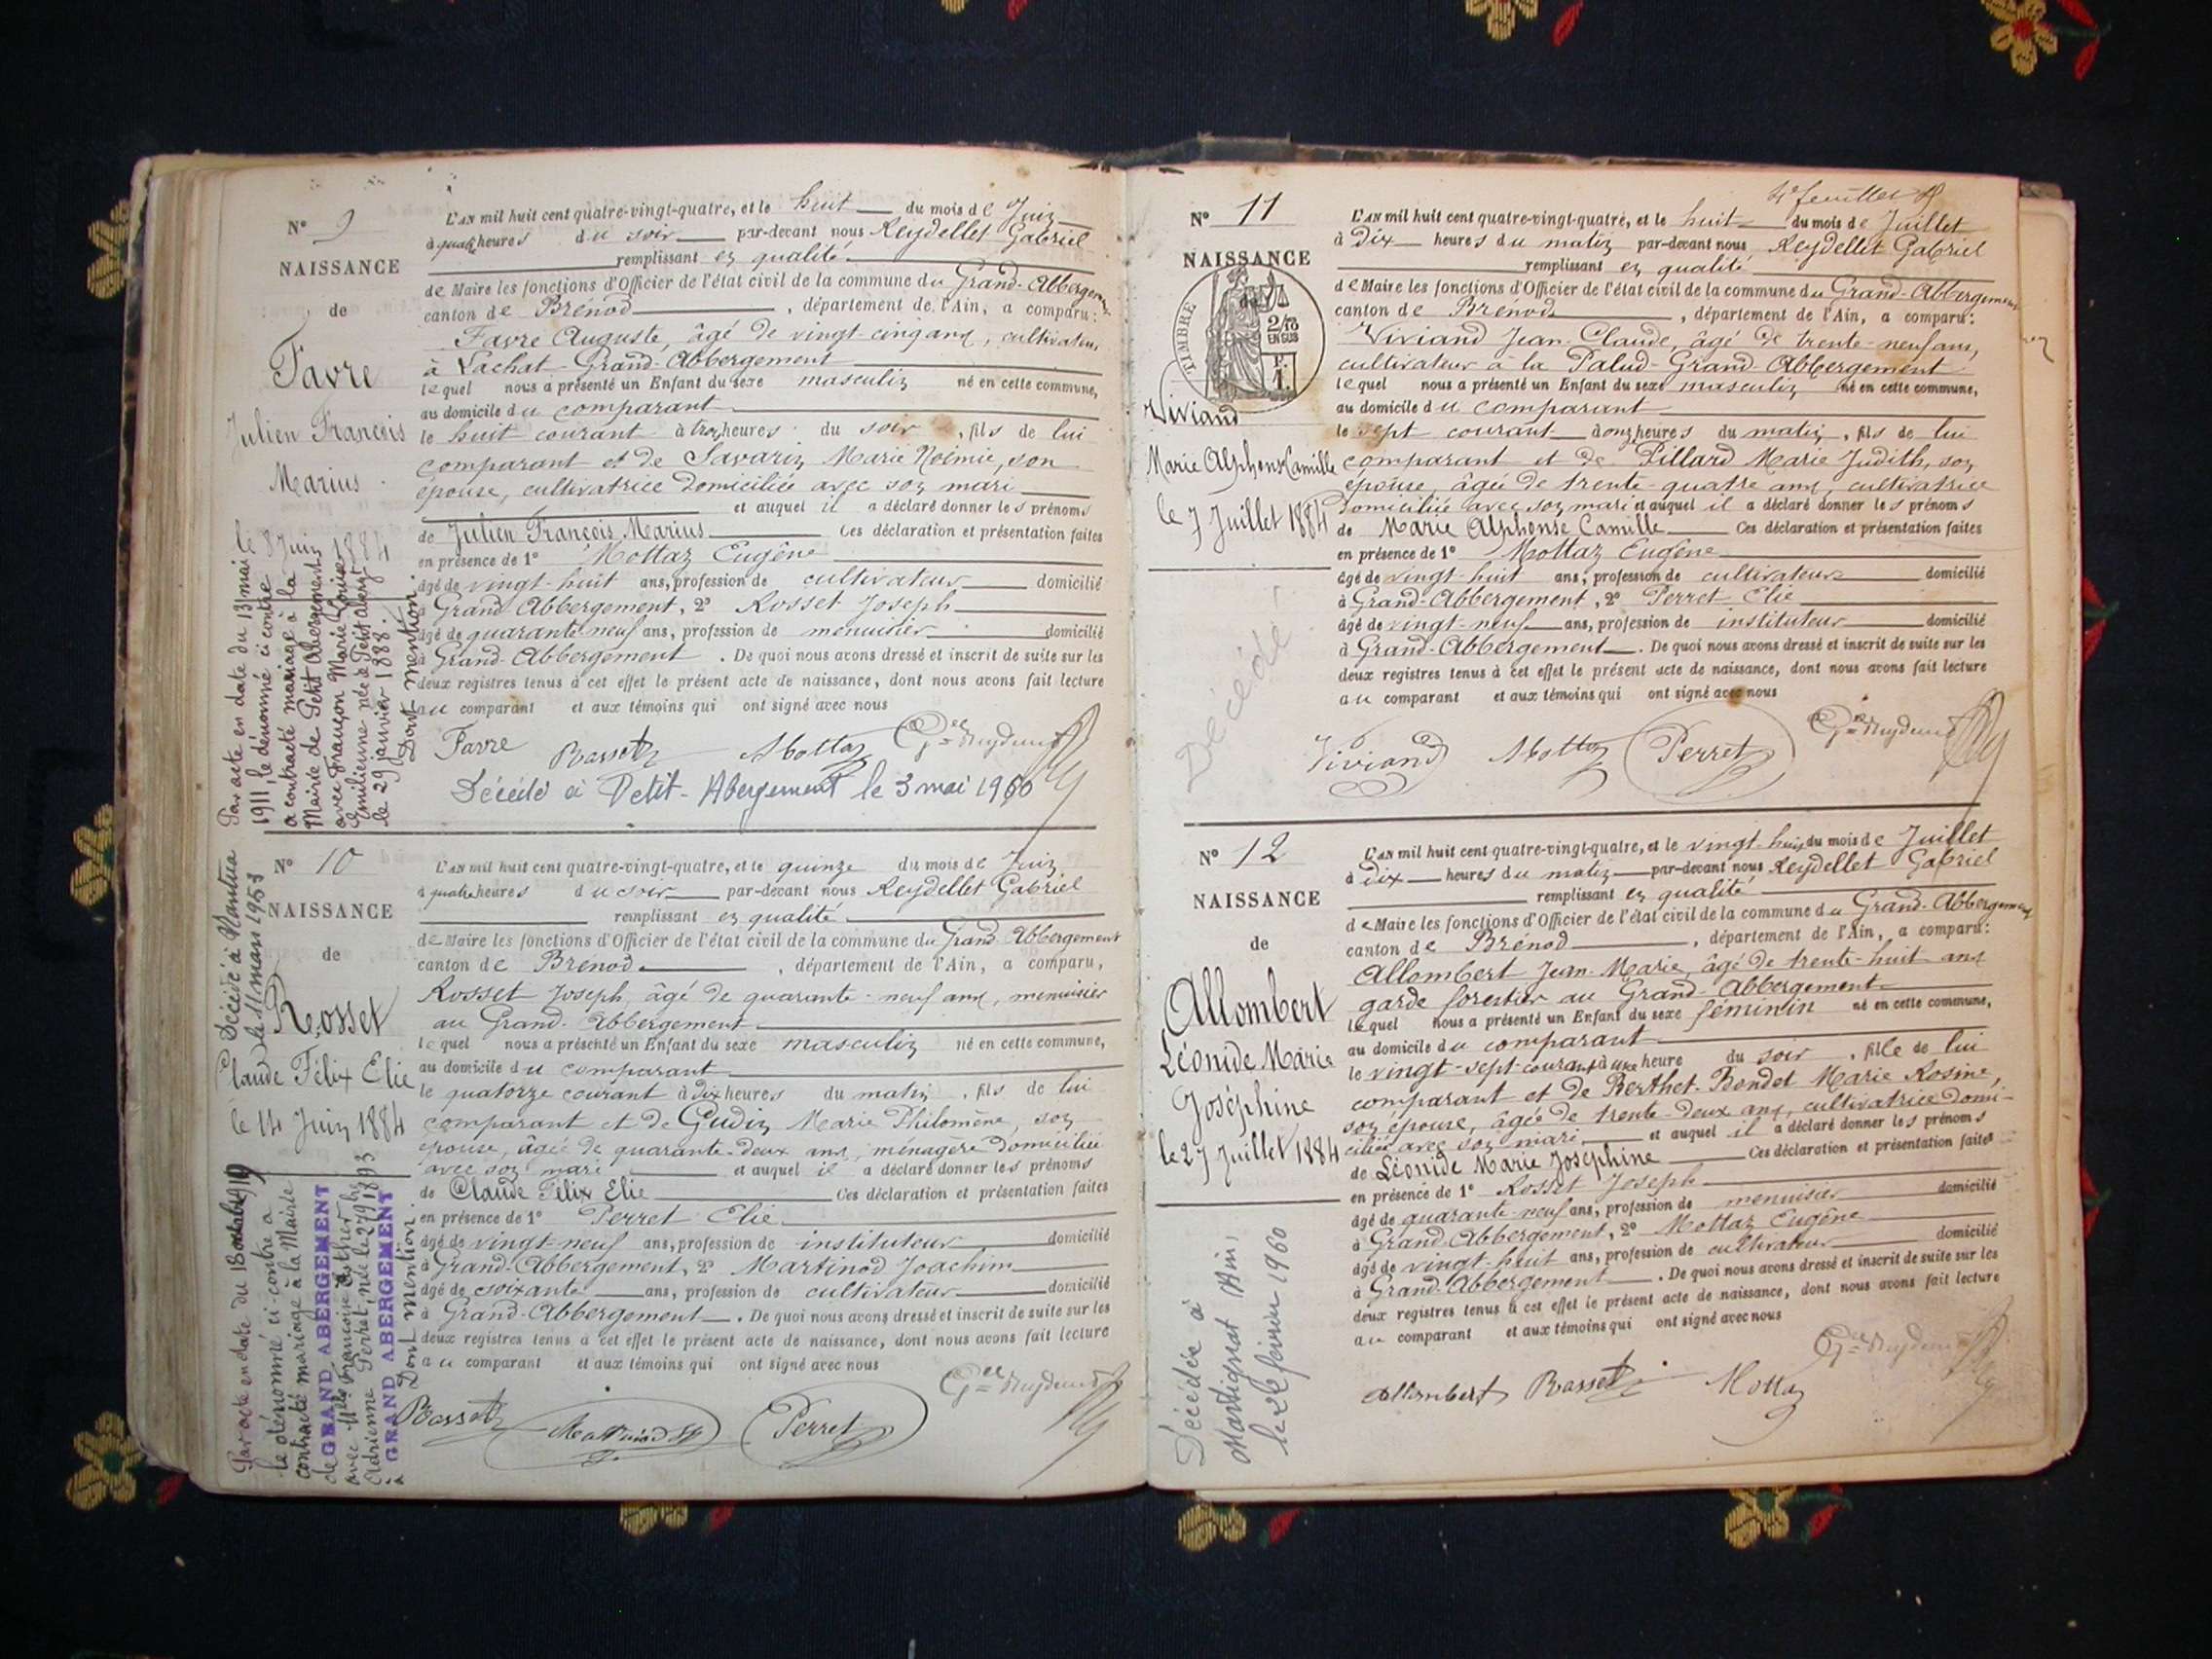 N° 9
NAISSANCE
de
Favre
Julien François
Marius
le 8 Juin 1884
Par acte en date du 13 mai
1911, le dénommé ci contre
a contracté mariage à la
Mairie de Petit Abergement
avec Françon Marie Louise
Emilienne née à Petit Aberg^t
le 29 janvier 1888.
Dont mention.
L'AN mil huit cent quatre-vingt-quatre, et le huit du mois de Juin
à quatre heures du soir par-devant nous Reydellet Gabriel
remplissant en qualité
de Maire les fonctions d'Officier de l'état civil de la commune du Grand-Abbergement
canton de Brénod , département de l'Ain, a comparu:
Favre Auguste, âgé de vingt-cinq ans, cultivateur
à Lachat-Grand-Abbergement
lequel nous a présenté un Enfant du sexe masculin né en cette commune,
au domicile du comparant
le huit courant à trois heures du soir , fils de lui
comparant et de Savarin Marie Noémie, son
épouse, cultivatrice domiciliée avec son mari
et auquel il a déclaré donner les prénoms
de Julien François Marius Ces déclaration et présentation faites
en présence de 1° Mottaz Eugène
âgé de vingt-huit ans, profession de cultivateur domicilié
à Grand-Abbergement, 2° Rosset Joseph
âgé de quarante-neuf ans, profession de menuisier domicilié
à Grand-Abbergement . De quoi nous avons dressé et inscrit de suite sur les
deux registres tenus à cet effet le présent acte de naissance, dont nous avons fait lecture
au comparant et aux témoins qui ont signé avec nous
Favre Rosset Mottaz
Décédé à Petit-Abergement le 3 mai 1960
N° 10
NAISSANCE
de
Rosset
Claude Félix Elie
le 14 Juin 1884
Décédé à Nantua
le 11 mars 1953
Par acte en date du 18 octobre 1919
le dénommé ci-contre a
contracté mariage à la Mairie
de GRAND ABERGEMENT
avec M^elle Françoise Esther
Adrienne Perret, née le 27 9^bre 1893
à GRAND ABERGEMENT
Dont mention.
L'AN mil huit cent quatre-vingt-quatre, et le quinze du mois de Juin
à quatre heures du soir par-devant nous Reydellet Gabriel
remplissant en qualité
de Maire les fonctions d'Officier de l'état civil de la commune du Grand Abbergement
canton de Brénod , département de l'Ain, a comparu,
Rosset Joseph, âgé de quarante-neuf ans, menuisier
au Grand-Abbergement
lequel nous a présenté un Enfant du sexe masculin né en cette commune,
au domicile du comparant
le quatorze courant à dix heures du matin , fils de lui
comparant et de Gudin Marie Philomène, son
épouse, âgée de quarante-deux ans, ménagère domiciliée
avec son mari et auquel il a déclaré donner les prénoms
de Claude Félix Elie Ces déclaration et présentation faites
en présence de 1° Perret Elie
âgé de vingt-neuf ans, profession de instituteur domicilié
à Grand-Abbergement, 2° Martinod Joachim
âgé de soixante ans, profession de cultivateur domicilié
à Grand-Abbergement . De quoi nous avons dressé et inscrit de suite sur les
deux registres tenus à cet effet le présent acte de naissance, dont nous avons fait lecture
au comparant et aux témoins qui ont signé avec nous
Rosset Martinod Perret
4e feuillet
N° 11
NAISSANCE
de
TIMBRE
2/10 EN SUS
F.
1.
Viviand
Marie Alphonse Camille
le 7 Juillet 1884
Décédé
L'AN mil huit cent quatre-vingt-quatre, et le huit du mois de Juillet
à Dix heures du matin par-devant nous Reydellet Gabriel
remplissant en qualité
de Maire les fonctions d'Officier de l'état civil de la commune du Grand-Abbergement
canton de Brénod , département de l'Ain, a comparu:
Viviand Jean-Claude, âgé de trente-neuf ans,
cultivateur à la Palud-Grand-Abbergement
lequel nous a présenté un Enfant du sexe masculin né en cette commune,
au domicile du comparant
le sept courant à onz heures du matin , fils de lui
comparant et de Pillard Marie Judith, son
épouse, âgée de trente-quatre ans, cultivatrice
domiciliée avec son mari et auquel il a déclaré donner les prénoms
de Marie Alphonse Camille Ces déclaration et présentation faites
en présence de 1° Mottaz Eugène
âgé de vingt-huit ans, profession de cultivateur domicilié
à Grand-Abbergement, 2° Perret Elie
âgé de vingt-neuf ans, profession de instituteur domicilié
à Grand-Abbergement . De quoi nous avons dressé et inscrit de suite sur les
deux registres tenus à cet effet le présent acte de naissance, dont nous avons fait lecture
au comparant et aux témoins qui ont signé avec nous
Viviand Mottaz Perret
N° 12
NAISSANCE
de
Allombert
Léonide Marie
Joséphine
le 27 Juillet 1884
Décédée à
Martignat Ain,
le 22 février 1960
L'AN mil huit cent quatre-vingt-quatre, et le vingt-huit du mois de Juillet
à Dix heures du matin par-devant nous Reydellet Gabriel
remplissant en qualité
de Maire les fonctions d'Officier de l'état civil de la commune du Grand-Abbergement
canton de Brénod , département de l'Ain, a comparu:
Allombert Jean-Marie, âgé de trente-huit ans
garde forestier au Grand-Abbergement
lequel nous a présenté un Enfant du sexe féminin né en cette commune,
au domicile du comparant
le vingt-sept courant à une heure du soir , fille de lui
comparant et de Berthet-Bondet Marie Rosine,
son épouse, âgée de trente-deux ans, cultivatrice domi-
ciliée avec son mari et auquel il a déclaré donner les prénoms
de Léonide Marie Joséphine Ces déclaration et présentation faites
en présence de 1° Rosset Joseph
âgé de quarante-neuf ans, profession de menuisier domicilié
à Grand-Abbergement, 2° Mottaz Eugène
âgé de vingt-huit ans, profession de cultivateur domicilié
à Grand-Abbergement . De quoi nous avons dressé et inscrit de suite sur les
deux registres tenus à cet effet le présent acte de naissance, dont nous avons fait lecture
au comparant et aux témoins qui ont signé avec nous
Allombert Rosset Mottaz